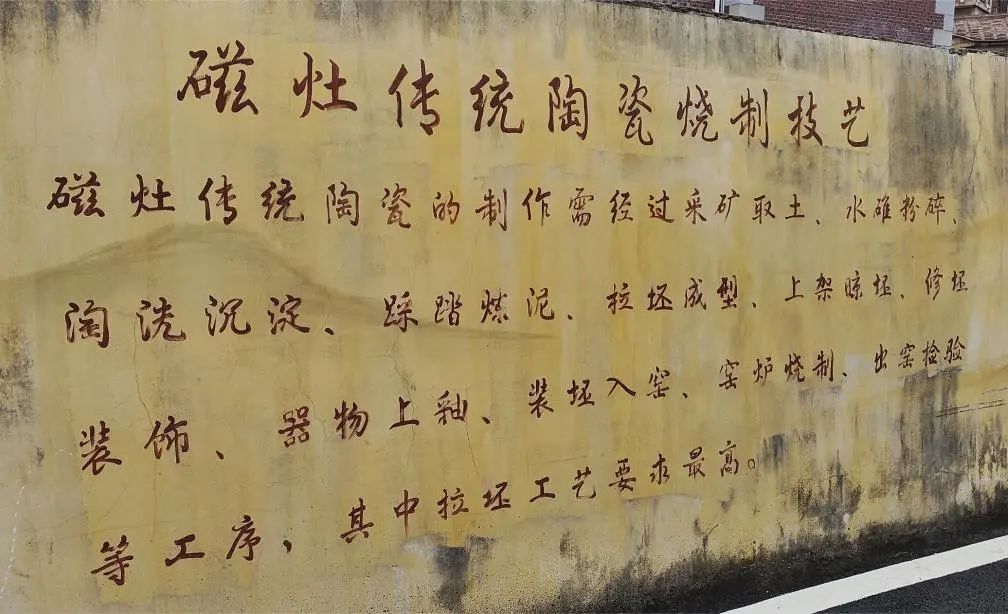 磁灶传统陶瓷烧制技艺
磁灶传统陶瓷的制作需经过采矿取土、水碓粉碎、
淘洗沉淀、踩踏炼泥、拉坯成型、上架晾坯、修坯
装饰、器物上釉、装坯入窑、窑炉烧制、出窑检验
等工序，其中拉坯工艺要求最高。